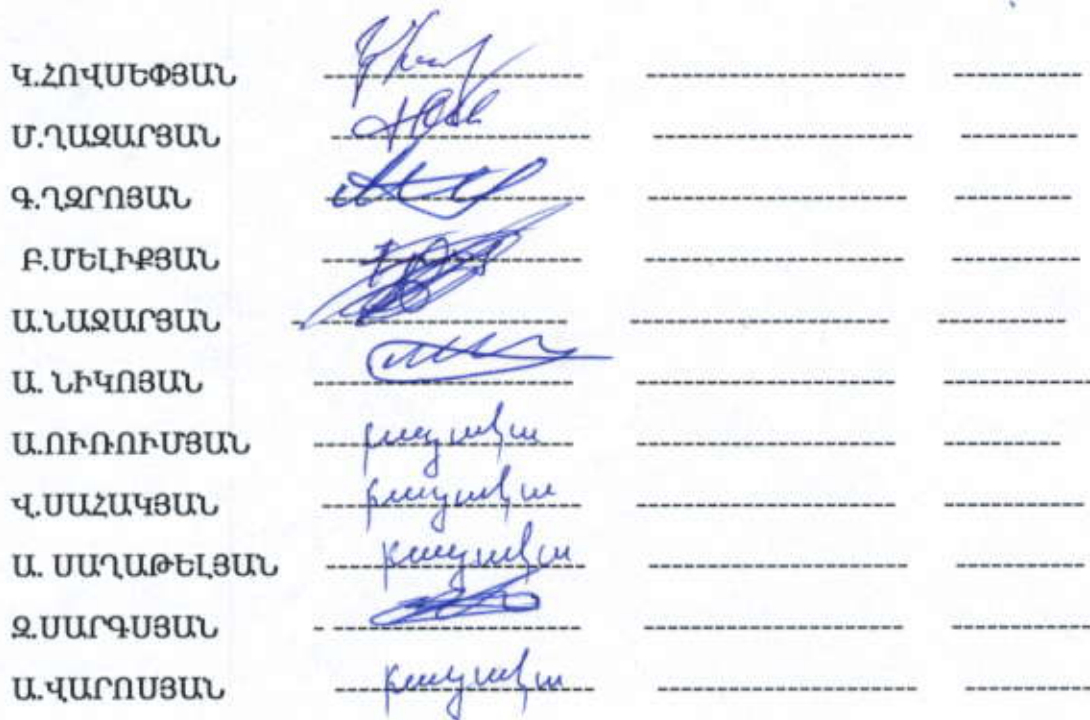 Կ.ՀՈՎՍԵՓՅԱՆ
Մ.ՂԱԶԱՐՅԱՆ
Գ.ՂԶՐՈՅԱՆ
Բ.ՄԵԼԻՔՅԱՆ
Ա.ՆԱԶԱՐՅԱՆ
Ա. ՆԻԿՈՅԱՆ
Ա.ՈՒՌՈՒՄՅԱՆ բացակա
Վ.ՍԱՀԱԿՅԱՆ բացակա
Ա. ՍԱՂԱԹԵԼՅԱՆ բացակա
Զ.ՍԱՐԳՍՅԱՆ
Ա.ՎԱՐՈՍՅԱՆ բացակա